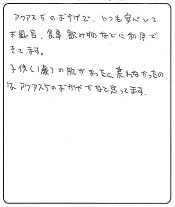 アクアス5のおかげで、いつも安心して
お風呂、食事、飲み物などに利用で
きてます。
子供(1歳)の肌があったく荒れなかったの
は、アクアス5のおかげかなと思ってます。